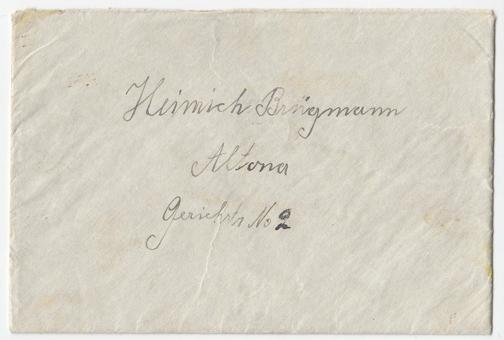 Heinrich Brügmann
Altona
Gerichstr No 2